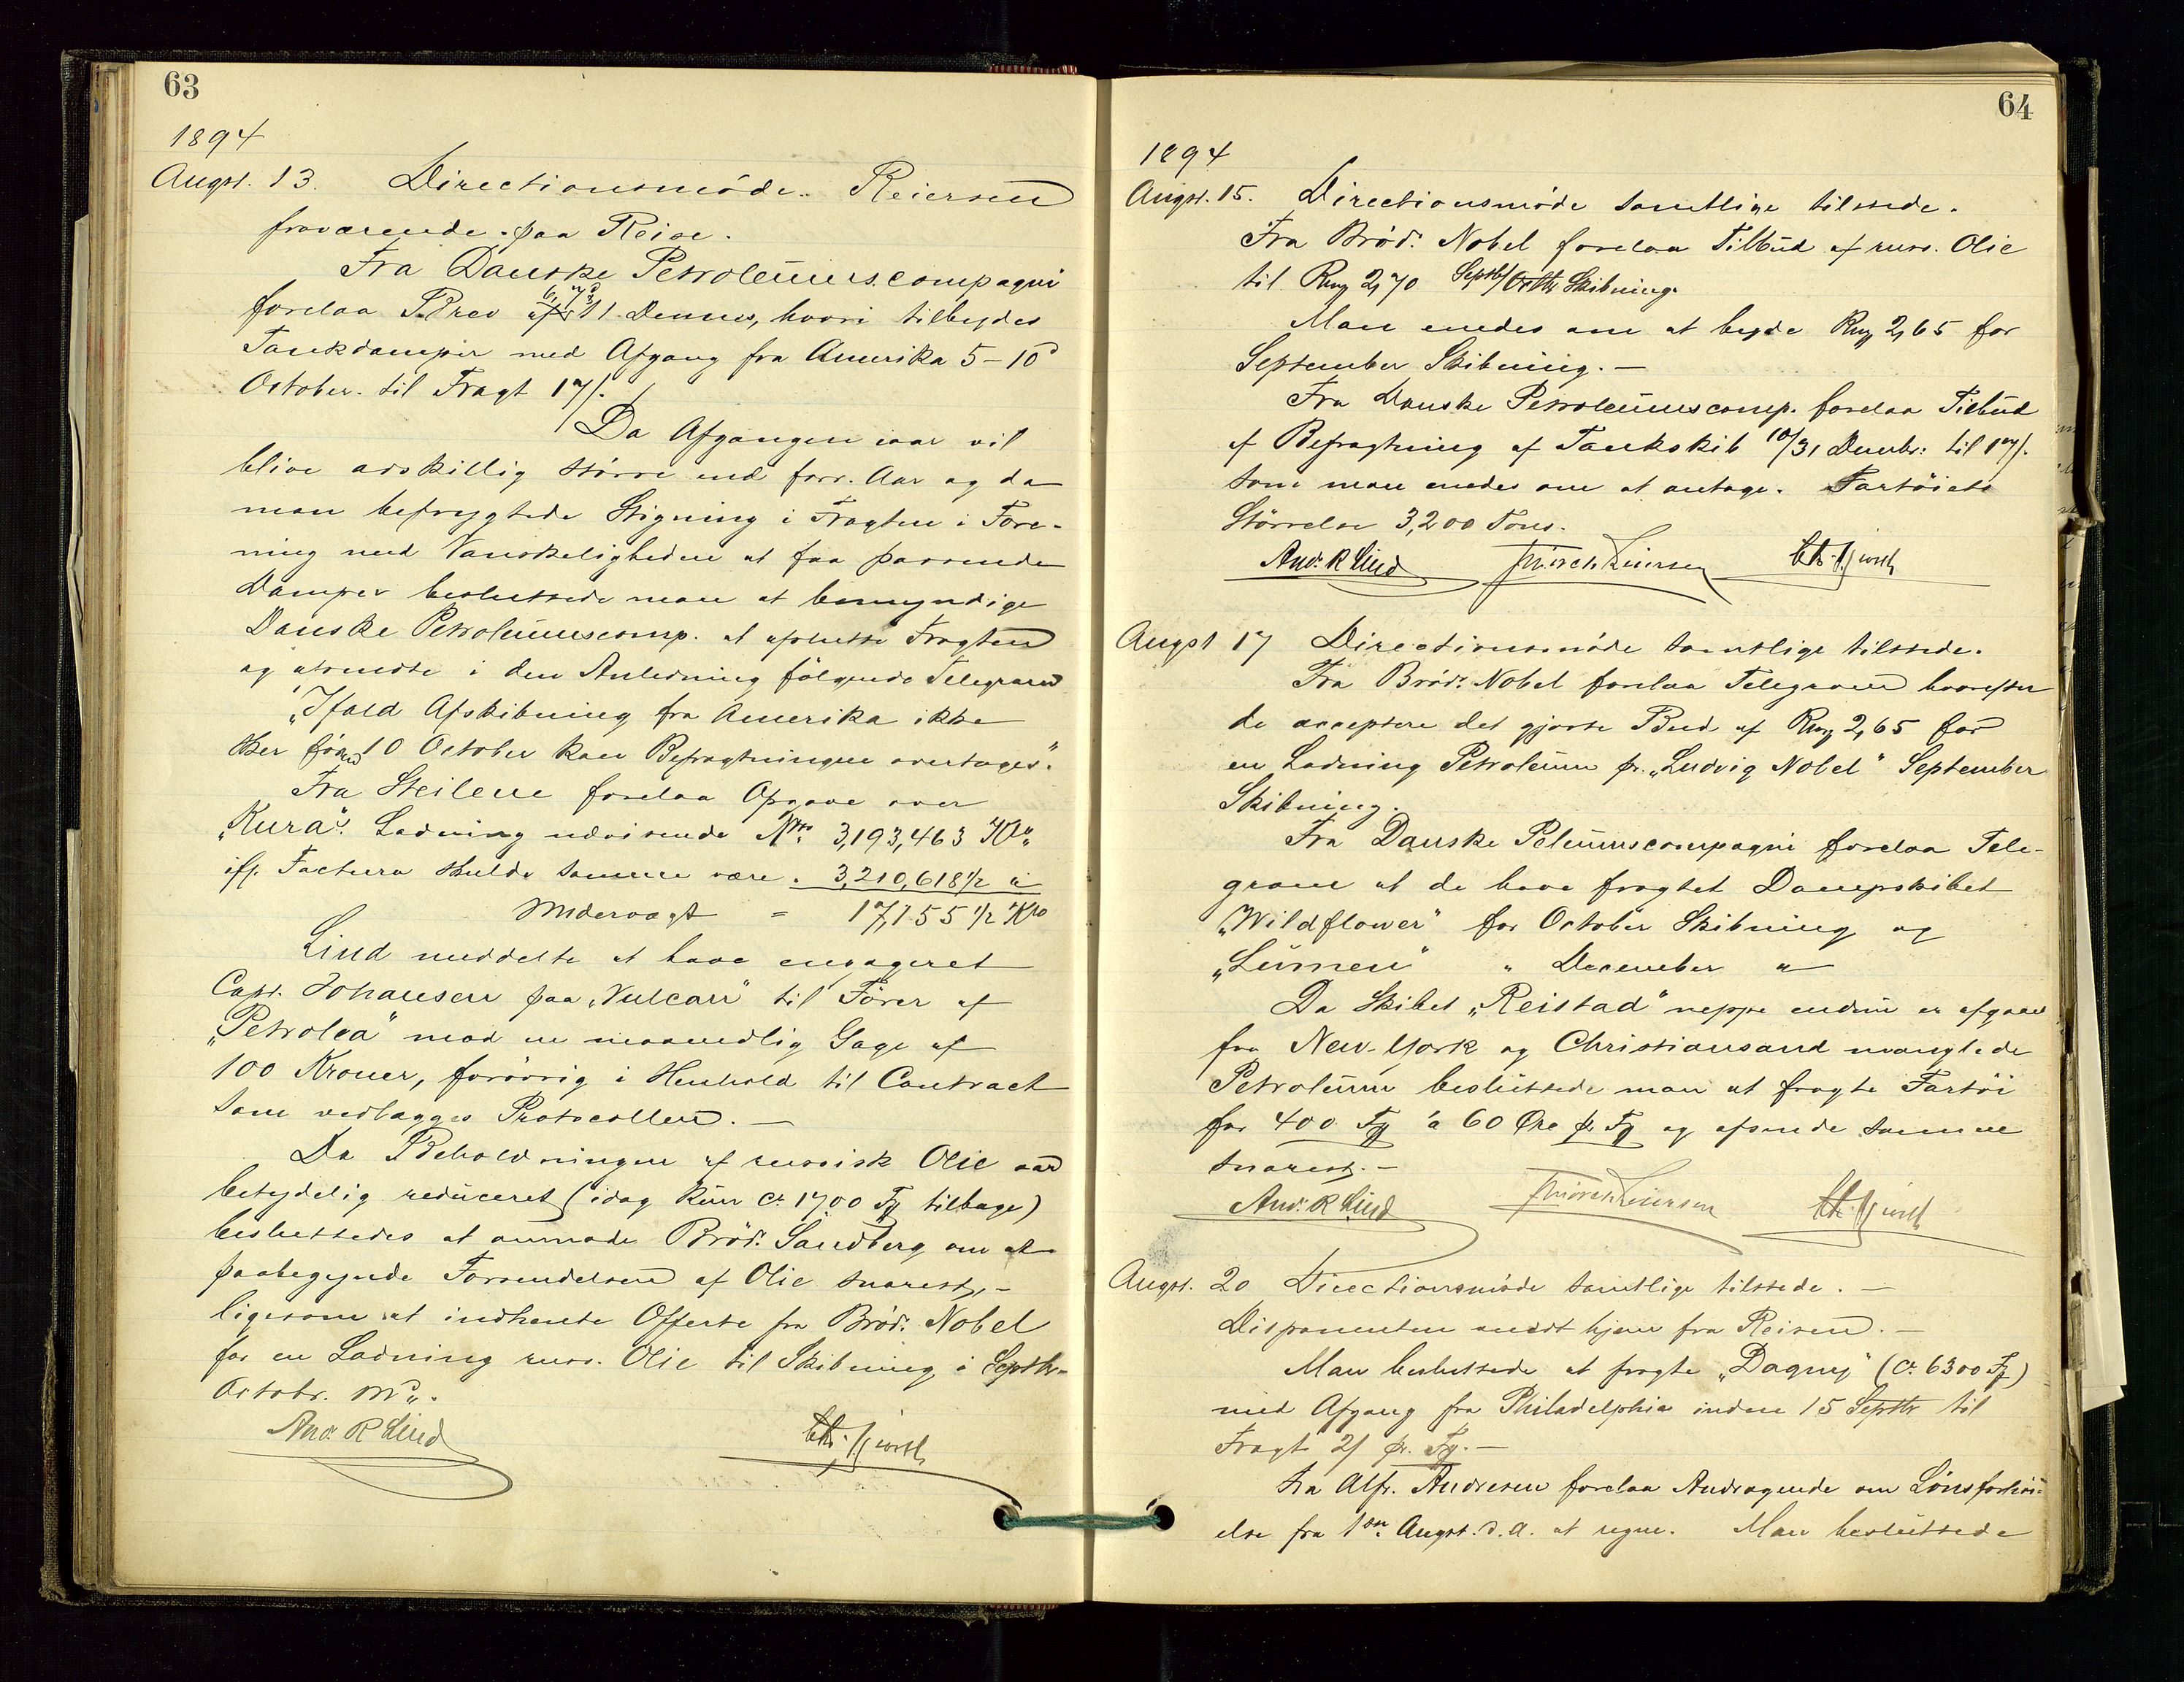 63
1894
Augst. 13. Directionsmöde. Reiersen
fraværende paa Reise.
Fra Danske Petroleumscompagni
forelaa Brev af 11 Dennes, hvori tilbydes
Tankdamper med Afgang fra Amerika 5-10
October til Fragt
Da Afgangen iaar vil
blive adskillig större end forr. Aar og da
man befrygtede Stigning i Fragten i Fore-
ning med Vanskeligheden at faa passende
Damper besluttede man at bemyndige
Danske Petroleumscomp. at afslutte Fragten
og afsendte i den Anledning fölgende Telegram
"Ifald Afskibning fra Amerika ikke
sker för 10 October kan Befragtningen overtages".
Fra Steilene forelaa Opgave over
"Kura's" Ladning udvisende Nto 3,193,463 Ko
ifl. Factura skulde samme være. 3,210,618½ "
Undervægt = 17,155½ Ko
Lind meddelte at have engageret
Capt. Johansen paa "Vulcan" til Förer af
"Petrolea" mod en maanedlig Gage af
100 Kroner, forövrig i Henhold til Contract
som vedlægges Protocollen. —
Da Beholdningen af russisk Olie var
betydelig reduceret (idag kun ca 1700 Fg tilbage)
besluttedes at anmode Bröd. Sandberg om at
paabegynde Forsendelsen af Olie snarest, -
ligesom at indhente Offerte fra Bröd. Nobel
for en Ladning russ. Olie til Skibning i Septbr-
Octobr. Md.
And. R Lind Chr. Hjorth
64
1894
Augst. 15. Directionsmöde samtlige tilstede.
Fra Bröd. Nobel forelaa Tilbud af russ. Olie
til Rmg 2,70 Septbr/Octbr Skibning.
Man enedes om at byde Rmg 2,65 for
September Skibning. —
Fra Danske Petroleumscomp. forelaa Tilbud
af Befragtning af Tankskib 10/31 Decembr. til
som man enedes om at antage. Fartöiets
Störrelse 3,200 Tons.
And. R Lind J Mörch Reiersen Chr. Hjorth
Augst 17 Directionsmöde samtlige tilstede.
Fra Bröd. Nobel forelaa Telegram hvorefter
de acceptere det gjorte Bud af Rmg 2,65 for
en Ladning Petroleum pr. "Ludvig Nobel" September
Skibning.
Fra Danske Peleumscompagni forelaa Tele-
gram at de have fragtet Dampskibet
"Wildflower" for October Skibning og
"Lumen" " December "
Da Skibet "Reistad" neppe endnu er afgaaet
fra New-York og Christiansand manglede
Petroleum besluttede man at fragte Fartöi
for 400 Fg à 60 Øre pr. Fg og afsende samme
snarest. —
And. R Lind J Mörch Reiersen Chr. Hjorth
Augst. 20 Directionsmöde samtlige tilstede. —
Disponenten vendt hjem fra Reisen. —
Man besluttede at fragte "Dagny" (ca. 6300 Fg)
med Afgang fra Philadelphia inden 15 Septbr til
Fragt 2/ pr. Fg. —
Fra Alfr. Andresen forelaa Andragende om Lönsforhöi-
else fra 1ste Augst. d.A. at regne. Man besluttede